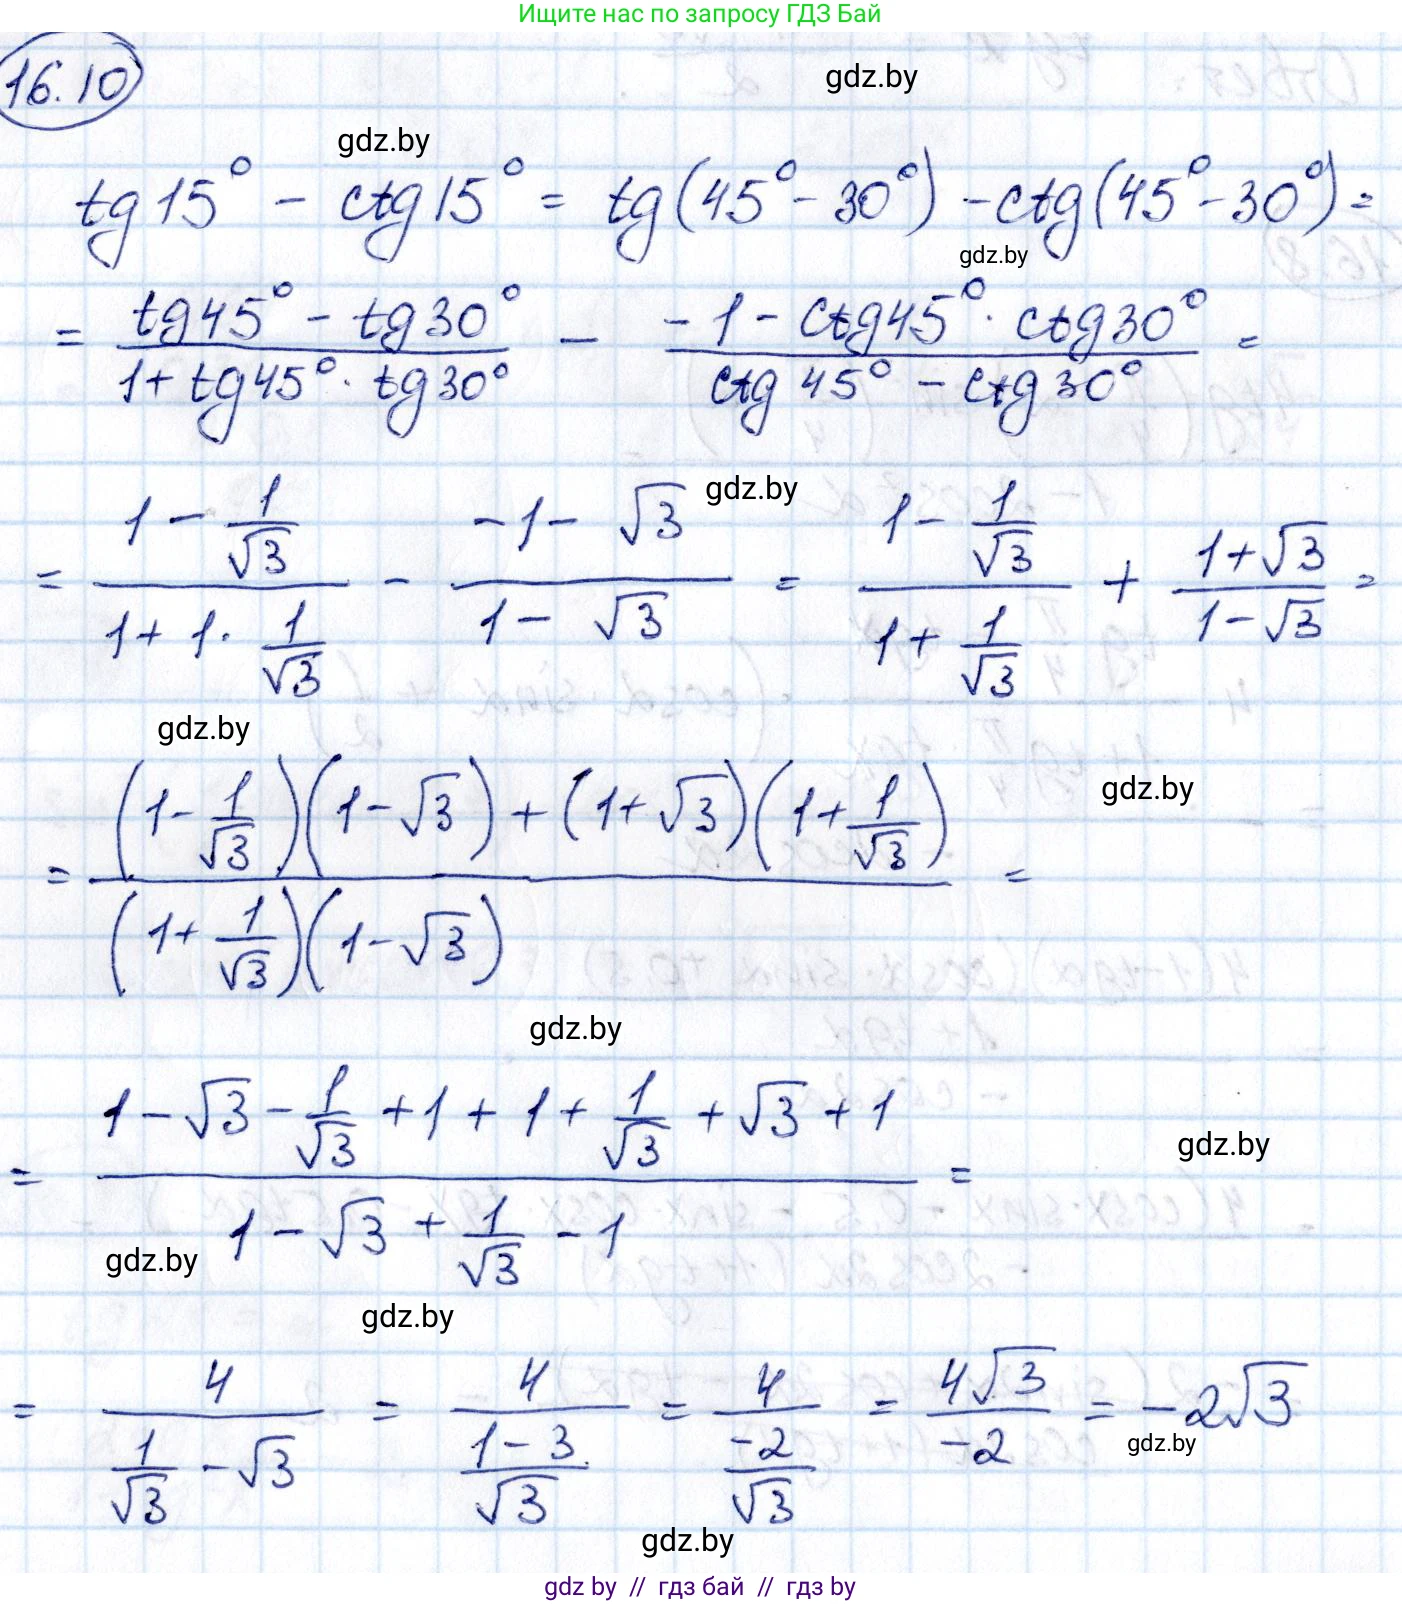 Ищите нас по запросу ГДЗ Бай
16.10
gdz.by
gdz.by
tg15° - ctg15° = tg(45° - 30°) - ctg(45° - 30°) =
gdz.by
= (tg45° - tg30°)/(1 + tg45° · tg30°) - (-1 - ctg45° · ctg30°)/(ctg45° - ctg30°) =
gdz.by
= (1 - 1/√3)/(1 + 1 · 1/√3) - (-1 - √3)/(1 - √3) = (1 - 1/√3)/(1 + 1/√3) + (1 + √3)/(1 - √3) =
gdz.by
gdz.by
= ((1 - 1/√3)(1 - √3) + (1 + √3)(1 + 1/√3))/((1 + 1/√3)(1 - √3)) =
gdz.by
= (1 - √3 - 1/√3 + 1 + 1 + 1/√3 + √3 + 1)/(1 - √3 + 1/√3 - 1) =
gdz.by
gdz.by
gdz.by
= 4/(1/√3 - √3) = 4/((1 - 3)/√3) = 4/(-2/√3) = 4√3/-2 = -2√3
gdz.by
gdz.by
gdz by // гдз бай // гдз by